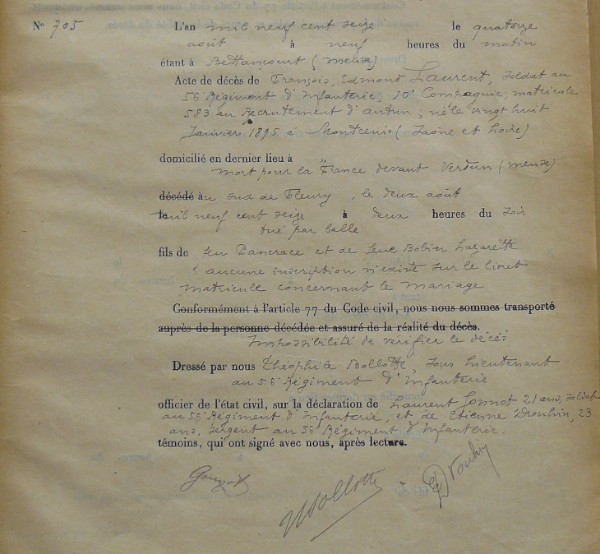 N° 705 L'an mil neuf cent seize le quatorze
août à neuf heures du matin
étant à Bettancourt (Meuse)
Acte de décès de François, Edmont Laurent, soldat au
56 Régiment d'Infanterie, 10e Compagnie, matricule
583 au Recrutement d'Autun, né le vingt huit
Janvier 1895 à Montcenis (Saône et Loire)
domicilié en dernier lieu à
mort pour la France devant Verdun (Meuse)
décédé au sud de Fleury, le deux août
mil neuf cent seize à deux heures du soir
tué par balle
fils de feu Pancrace et de feue Bobin Lazarette
aucune inscription n'existe sur le livret
matricule concernant le mariage
Conformément à l'article 77 du Code civil, nous nous sommes transporté
auprès de la personne décédée et assuré de la réalité du décès.
Impossibilité de vérifier le décès
Dressé par nous Théophile Bollotte, Sous Lieutenant
au 56 Régiment d'Infanterie
officier de l'état civil, sur la déclaration de Laurent 21 ans, soldat
au 56 Régiment d'Infanterie, et de Etienne Drouhin, 23
ans, sergent au 56 Régiment d'Infanterie.
témoins, qui ont signé avec nous, après lecture.